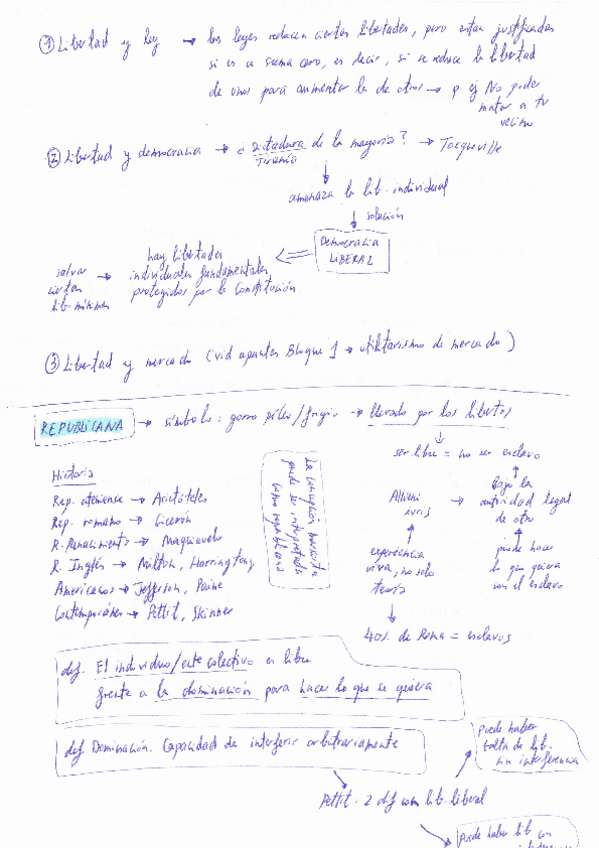 ① Libertad y ley → las leyes reducen ciertas libertades, pero estan justificadas
si es a suma cero, es decir, si se reduce la libertad
de unos para aumentar la de otros → p ej No poder
matar a tu
vecino
② Libertad y democracia → ¿Dictadura de la mayoría? → Tocqueville
Tiranía
↓
amenaza la lib. individual
↓ solución
Democracia
LIBERAL
⇐ hay libertades
individuales fundamentales
protegidas por la Constitución
→ salvar
ciertas
lib mínimas
③ Libertad y mercado (vid apuntes Bloque 1 → utilitarismo de mercado)
REPUBLICANA → símbolo: gorro píleo/frigio → llevado por los libertos
↓
ser libre = no ser esclavo
Historia
Rep. ateniense → Aristóteles
Rep. romana → Cicerón
R. Renacimiento → Maquiavelo
R. Inglés → Milton, Harrington
Americanos → Jefferson, Paine
Contemporáneos → Pettit, Skinner
La concepción marxista
puede ser interpretada
como republicana
Alieni
iuris
→ Bajo la
autoridad legal
de otro
↑
puede hacer
lo que quiera
con el esclavo
↑
experiencia
viva, no solo
teoría
↓
40% de Roma = esclavos
def. El individuo/ente colectivo es libre
frente a la dominación para hacer lo que se quiera
def Dominación. Capacidad de interferir arbitrariamente
Pettit - 2 dif con lib. liberal
Puede haber
falta de lib.
sin interferencia
Puede haber lib con